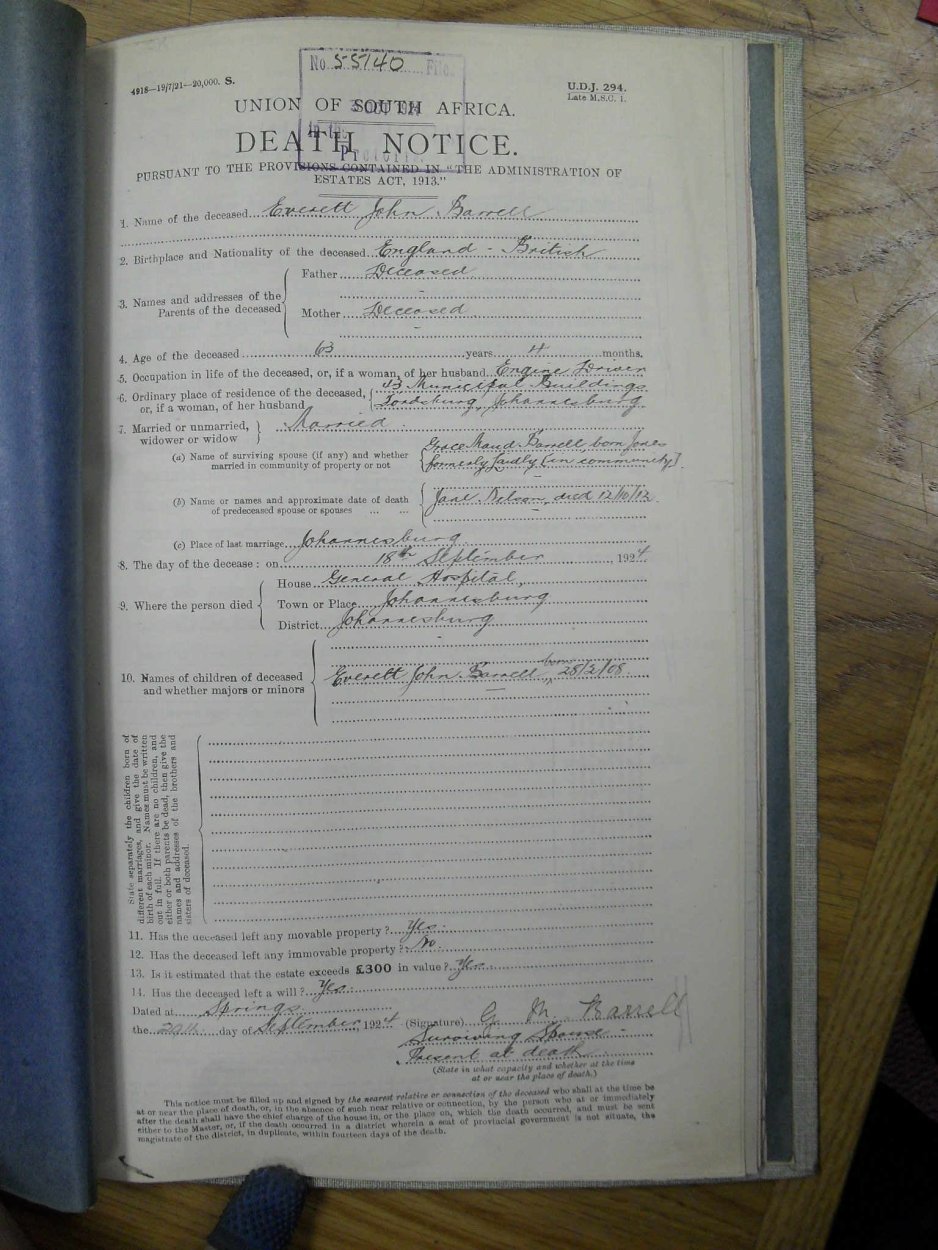 No 55140 File
4918—19/7/21—20,000. S.
U.D.J. 294.
Late M.S.C. 1.
UNION OF SOUTH AFRICA.
In the
DEATH NOTICE.
Pretoria
PURSUANT TO THE PROVISIONS CONTAINED IN "THE ADMINISTRATION OF
ESTATES ACT, 1913."
1. Name of the deceased Everett John Barrell
2. Birthplace and Nationality of the deceased England - British
3. Names and addresses of the Parents of the deceased
Father Deceased
Mother Deceased
4. Age of the deceased 63 years 4 months.
5. Occupation in life of the deceased, or, if a woman, of her husband Engine Driver
6. Ordinary place of residence of the deceased, 43 Municipal Buildings
or, if a woman, of her husband Fordsburg, Johannesburg
7. Married or unmarried, widower or widow Married.
(a) Name of surviving spouse (if any) and whether Grace Maud Barrell born Jones
married in community of property or not formerly (in community).
(b) Name or names and approximate date of death Jane Nelson, died 12/10/12
of predeceased spouse or spouses ... ...
(c) Place of last marriage Johannesburg
8. The day of the decease: on 18th September, 1924
9. Where the person died
House General Hospital,
Town or Place Johannesburg
District Johannesburg
10. Names of children of deceased and whether majors or minors
Everett John Barrell, born 28/2/08
State separately the children born of
different marriages, and give the date of
birth of each minor. Names must be written
out in full. If there are no children, and
either or both parents be dead, then give the
names and addresses of the brothers and
sisters of deceased.
11. Has the deceased left any movable property? Yes.
12. Has the deceased left any immovable property? No
13. Is it estimated that the estate exceeds £300 in value? Yes
14. Has the deceased left a will? Yes.
Dated at Springs
the day of September, 1924 (Signature) G. M. Barrell
Surviving Spouse
Present at death
(State in what capacity and whether at the time
at or near the place of death.)
This notice must be filled up and signed by the nearest relative or connection of the deceased who shall at the time be
at or near the place of death, or, in the absence of such near relative or connection, by the person who at or immediately
after the death shall have the chief charge of the house in, or the place on, which the death occurred, and must be sent
either to the Master, or, if the death occurred in a district wherein a seat of provincial government is not situate, the
magistrate of the district, in duplicate, within fourteen days of the death.